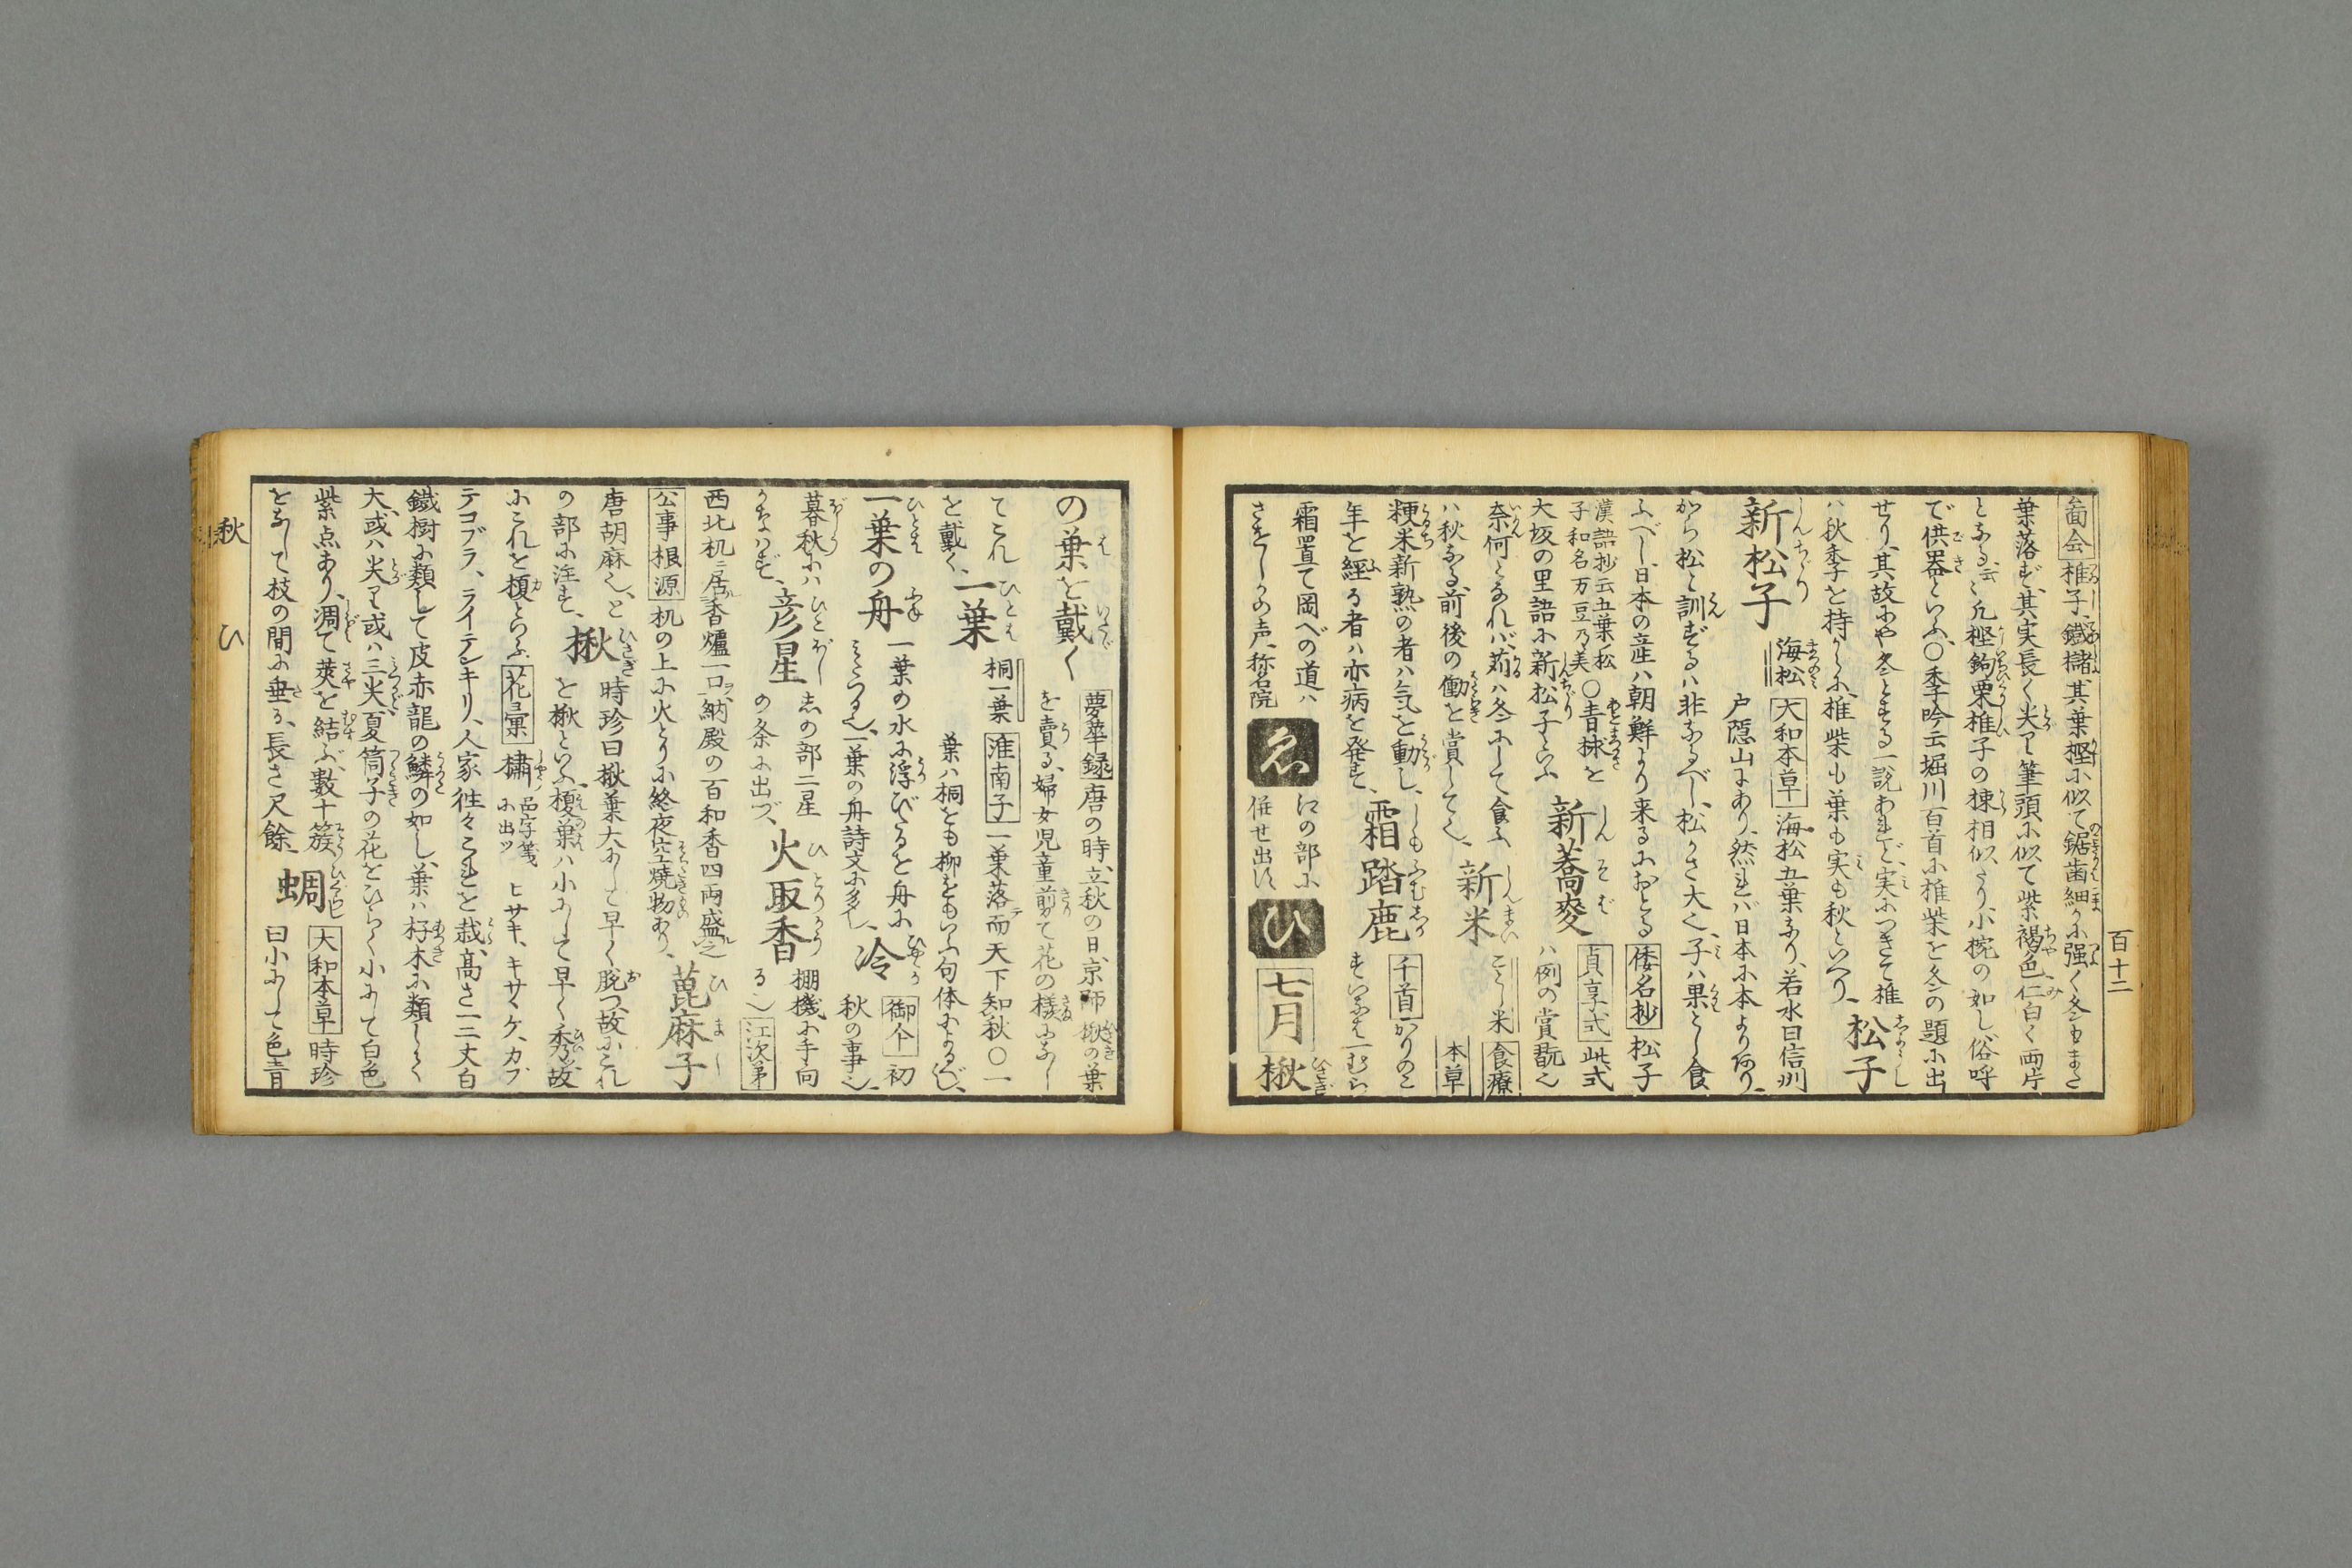 百十二
㽞会 椎子 鐵櫧 其葉樫に似て鋸歯細かに强く冬もまた
葉落ず、其実長く尖り筆頭に似て紫褐色仁白く両片
となる云々 凡樫鉤栗椎子の梂相似たり、小椀の如し、俗呼
で供器といふ、○季吟云堀川百首に椎柴を冬の題に出
せり、其故にや冬とする一説あれど、実につきて椎
ハ秋季を持からに、椎柴も葉も実も秋といへり、 松子
新松子 海松 大和本草 海松五葉なり、若水曰信州
戸隠山にあり、然れバ日本に本より有り、
から松と訓ずるハ非なるべし、松かさ大く、子ハ果とし食
ふべし、日本の産ハ朝鮮より来るにおとる 倭名抄 松子
漢語抄云五葉ノ松
子和名万豆乃美 ○青梂を
大坂の里語に新松子といふ 新蕎麥 貞享式 此式
ハ例の賞翫也
奈何となれバ、苅ハ冬にして食ふ
ハ秋なる、前後の働を賞してく、 新米 こゝし米 食療本草
粳米新熟の者ハ気を動し、
年を經る者ハ亦病を発す、 霜踏鹿 千首 かりのこ
すいなば一むら
霜置て岡べの道ハ
さをしかの声、称名院 ゑ 江の部に
任せ出ᄉ ひ 七月 楸
の葉を戴く 夢華録 唐の時、立秋の日、京師 楸の葉
を賣る、婦女児童剪て花の様になし
てこれ
を戴く、 一葉 桐一葉 淮南子 一葉落而天下知秋○一
葉ハ桐とも柳ともいふ句体によるべし、
一葉の舟 一葉の水に浮びたるを舟に
みたつる也、一葉の舟詩文に多し、 冷 御傘 初
秋の事也、
暮秋にハ
かなはず、 彦星 志の部二星
の条に出ヅ、 火取香 棚機に手向
る也 江次第
西北机ニ居香爐一口ヲ、納殿の百和香四両盛之
公事根源 机の上に火とりに終夜空焼物あり、 萞麻子
唐胡麻也、と
の部に注す、 楸 時珍曰楸葉大にして早く脱つ故にこれ
を楸といふ、榎葉ハ小にして早く秀故
にこれを榎といふ 花彙 橚 品字箋
に出ヅ ヒサキ、キサヽケ、カブ
テコブラ、ライテンキリ、人家往々これを栽、高さ一二丈白
鐵樹に類して皮赤龍の鱗の如し、葉ハ梓木に類して
大、或ハ尖り或ハ三尖、夏筒子の花をひらく小にて白色
紫点あり、凋て莢を結ぶ、數十簇
をなして枝の間に垂る、長さ尺餘 蜩 大和本草 時珍
曰小にして色青
秋 ひ